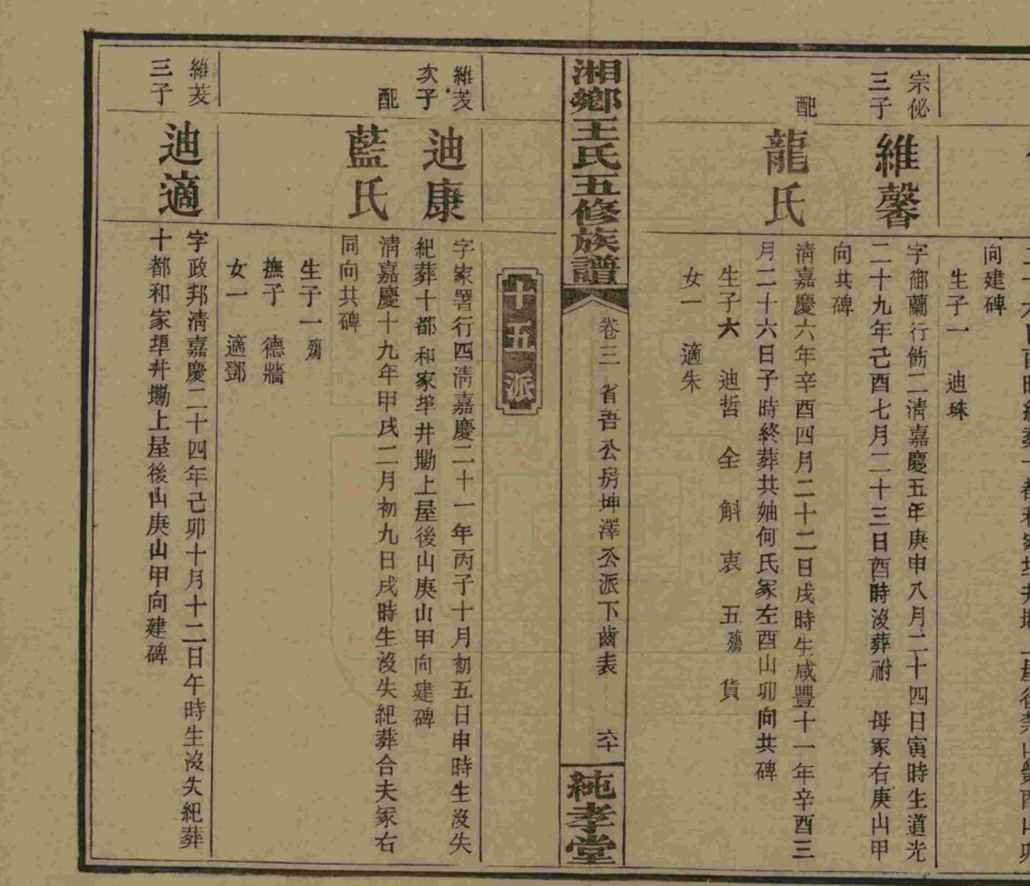 向建碑
生子一 迪珠
宗佖
三子
維馨
字
蘭行
二清嘉慶五年庚申八月二十四日寅時生道光
二十九年己酉七月二十三日酉時沒葬祔 母冢右庚山甲
向共碑
配
龍氏
清嘉慶六年辛酉四月二十二日戌時生咸豐十一年辛酉三
月二十六日子時終葬共妯何氏冢左酉山卯向共碑
生子六 迪哲 全 斛 衷 五殤 貨
女一 適朱
湘鄉王氏五修族譜
卷三 省吾公房坤澤公派下齒表 六十
純孝堂
十五派
維芨
次子
迪康
字家署行四清嘉慶二十一年丙子十月初五日申時生沒失
紀葬十都和家埠井塅上屋後山庚山甲向建碑
配
藍氏
清嘉慶十九年甲戌二月初九日戌時生沒失紀葬合夫冢右
同向共碑
生子一殤
撫子 德牆
女一 適鄧
維芨
三子
迪適
字政邦清嘉慶二十四年己卯十月十二日午時生沒失紀葬
十都和家埠井塅上屋後山庚山甲向建碑